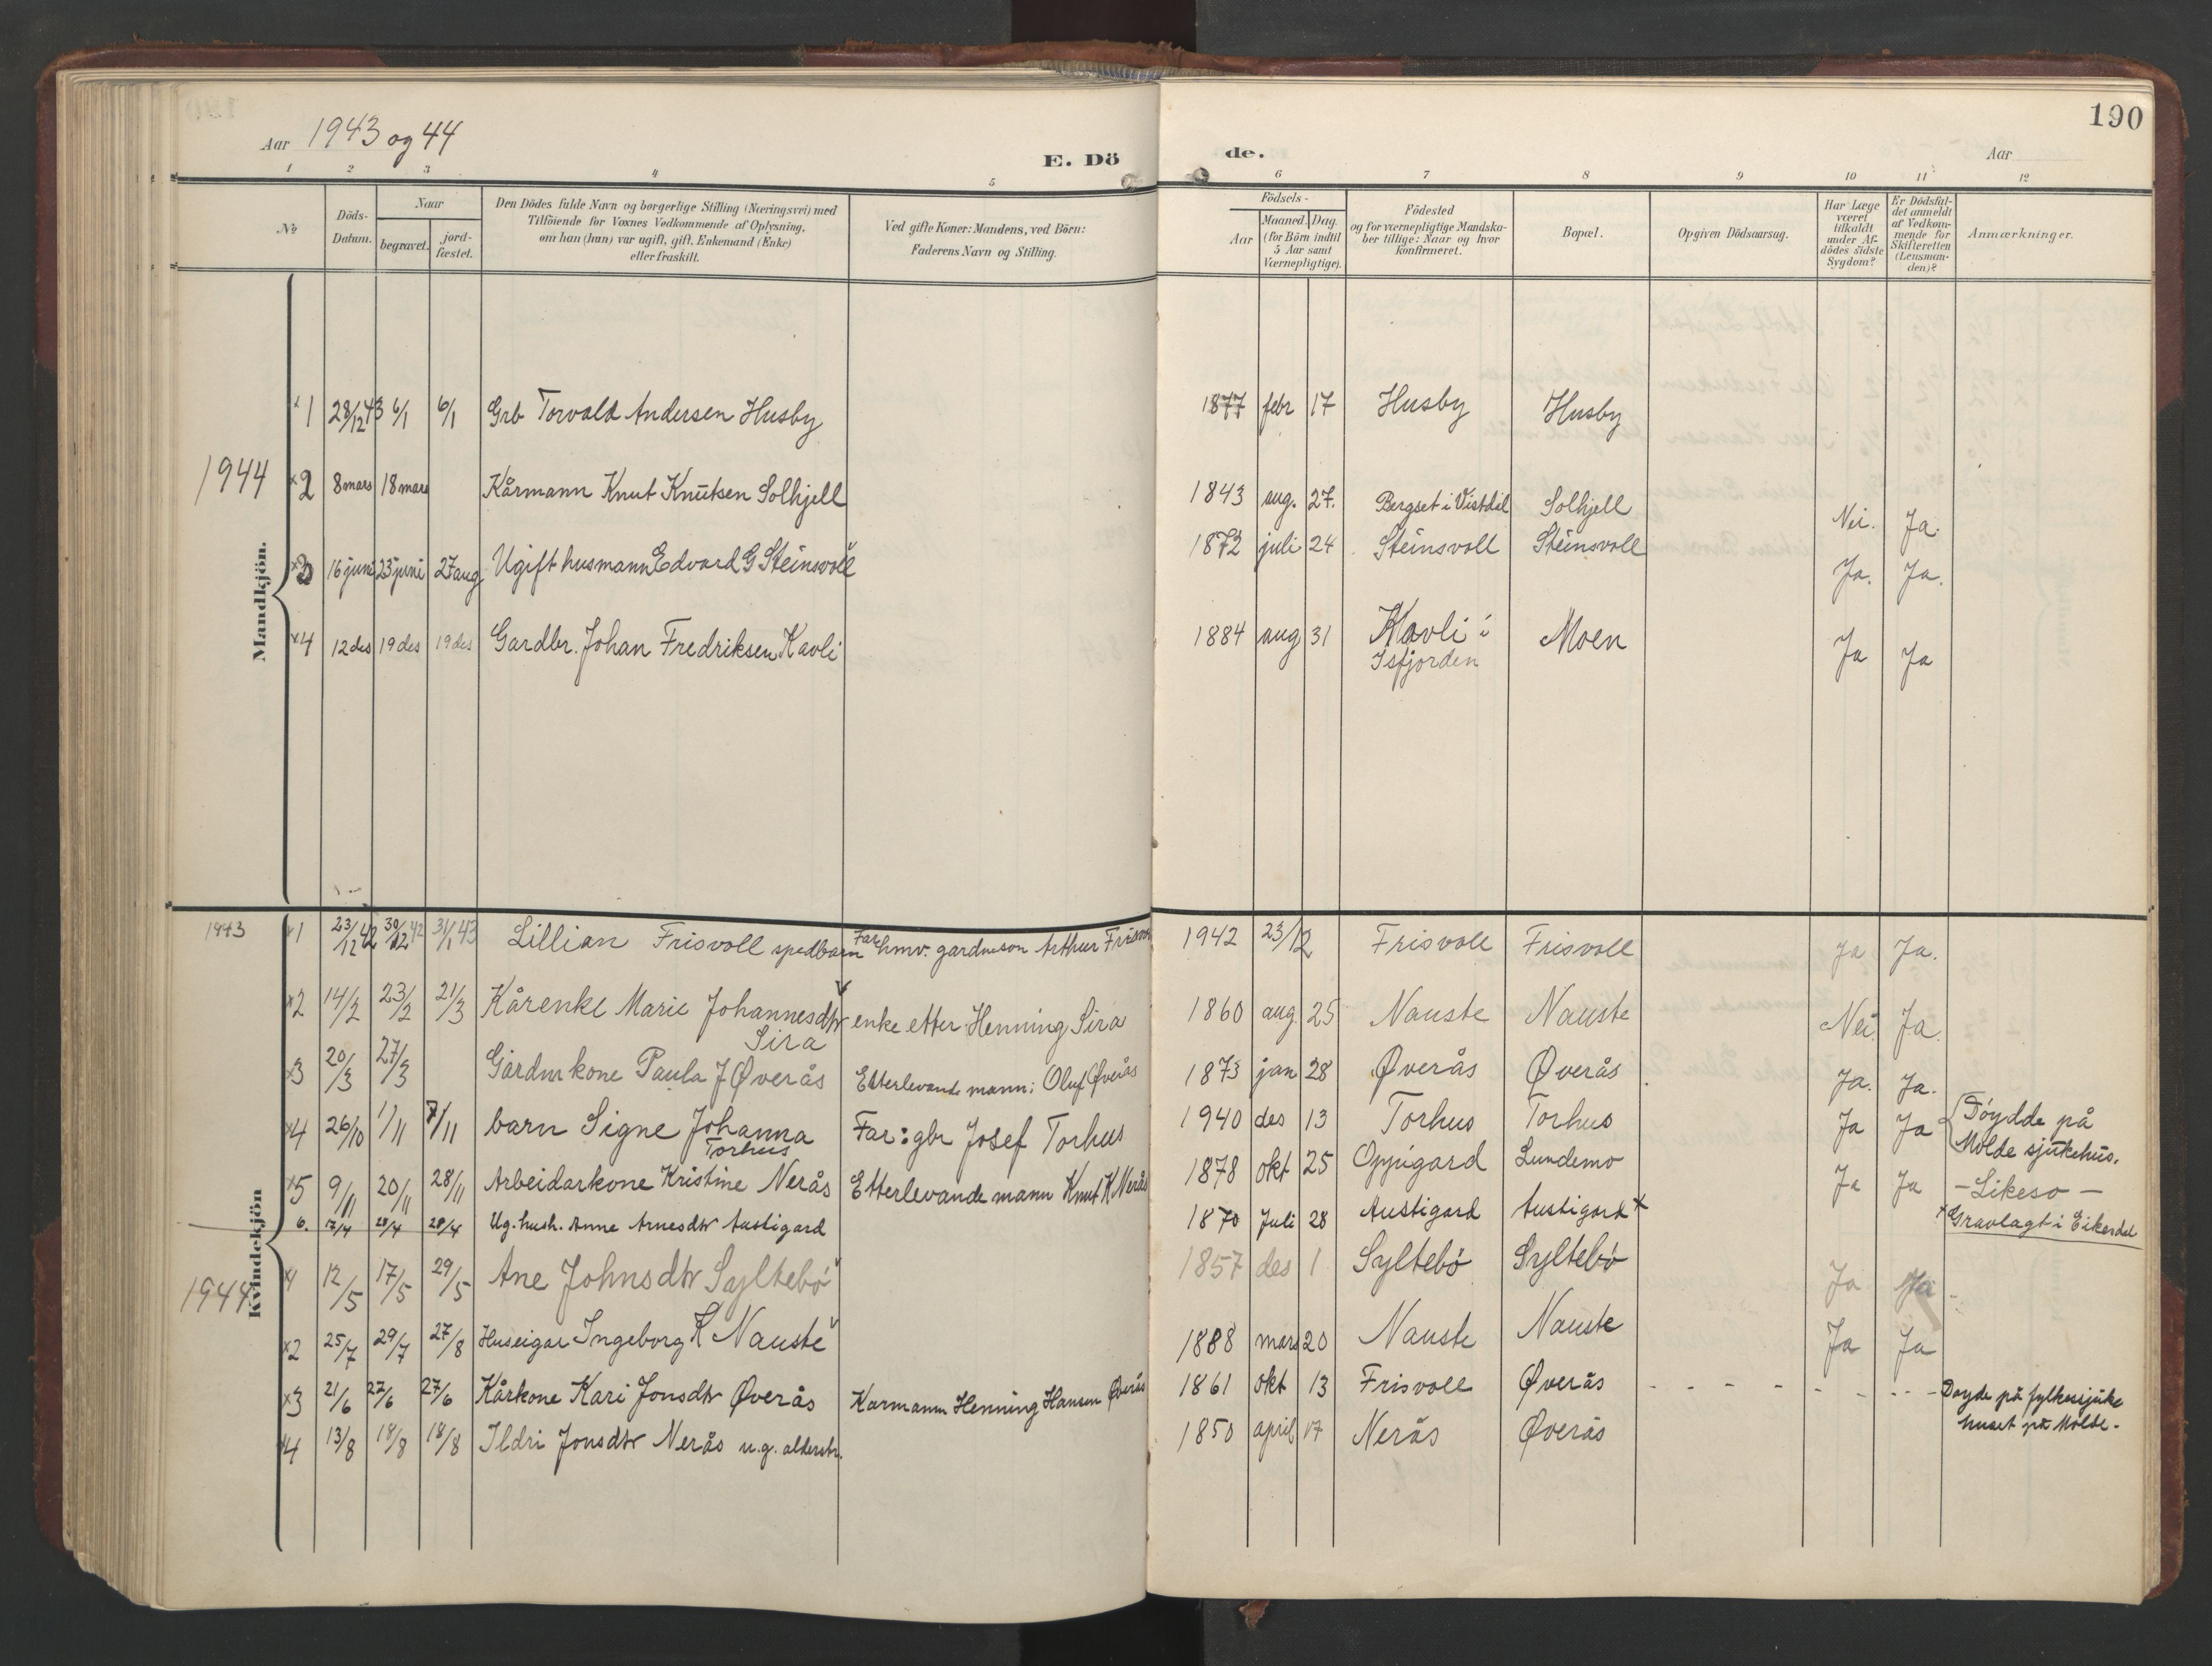 190
Aar 1943 og 44
E. Dö
de.
Aar
1 2 3 4 5 6 7 8 9 10 11 12
№
Döds-Datum.
Naar
begravet.
jord-fæstet.
Den Dödes fulde Navn og borgerlige Stilling (Næringsvei) med
Tilföiende for Voxnes Vedkommende af Oplysning,
om han (hun) var ugift, gift, Enkemand (Enke)
eller fraskilt.
Ved gifte Koner: Mandens, ved Börn:
Faderens Navn og Stilling.
Födsels-
Aar
Maaned. Dag.
(for Börn indtil
5 Aar samt
Værnepligtige).
Födested
og for værnepligtige Mandska-
ber tillige: Naar og hvor
konfirmeret.
Bopæl.
Opgiven Dödsaarsag.
Har Læge
været
tilkaldt
under Af-
dödes sidste
Sygdom?
Er Dödsfal-
det anmeldt
af Vedkom-
mende for
Skifteretten
(Lensman-
den)?
Anmærkninger.
Mandkjön.
×1 28/12 43 6/1 6/1 Grb Torvald Andersen Husby 1877 febr 17 Husby Husby
1944 ×2 8 mars 18 mars Kårmann Knut Knutsen Solhjell 1843 aug. 27. Bergset i Vistdal Solhjell Nei. Ja.
×3 16 juni 23 juni 27 aug Ugift husmann Edvard G Steinsvoll 1872 juli 24 Steinsvoll Steinsvoll Ja. Ja.
×4 12 des 19 des 19 des Gardbr. Johan Fredriksen Kavli 1884 aug 31 Kavli i Isfjorden Moen Ja Ja
Kvindekjön
1943 ×1 23/12 42 30/12 42 31/1 43 Lillian Frisvoll spedbarn Far hmv. gardmson Arthur Frisvoll 1942 23/12 Frisvoll Frisvoll Ja Ja.
×2 14/2 23/2 21/3 Kårenke Marie Johannesdtr Sira enke etter Henning Sira 1860 aug. 25 Nauste Nauste Nei Ja.
×3 20/3 27/3 Gardmkone Paula J Øverås Etterlevande mann: Oluf Øverås 1873 jan 28 Øverås Øverås Ja. Ja.
×4 26/10 1/11 7/11 barn Signe Johanna Torhus Far: gbr Josef Torhus 1940 des 13 Torhus Torhus Ja Ja Döydde på Molde sjukehus.
×5 9/11 20/11 28/11 Arbeidarkone Kristine Nerås Etterlevande mann Knut K Nerås 1878 okt 25 Oppigard Lundemo Ja Ja – Likeso –
6. 17/4 28/4 28/4 Ug. hush. Anne Arnesdtr Austigard 1870 Juli 28 Austigard Austigard × × Gravlagt i Eikesdal
1944 ×1 12/5 17/5 29/5 Ane Johnsdtr Syltebö 1857 des 1 Syltebö Syltebö Ja Ja
×2 25/7 29/7 27/8 Huseigar Ingeborg K Nauste 1888 mars 20 Nauste Nauste Ja Ja
×3 21/6 27/6 27/6 Kårkone Kari Jonsdtr Øverås Karmann Henning Hansen Øverås 1861 okt 13 Frisvoll Øverås - - - - - - - - Döyde på fylkessjuke huset på Molde.
×4 13/8 18/8 18/8 Ildri Jonsdtr Nerås u.g. alderstr. 1850 april 17 Nerås Øverås